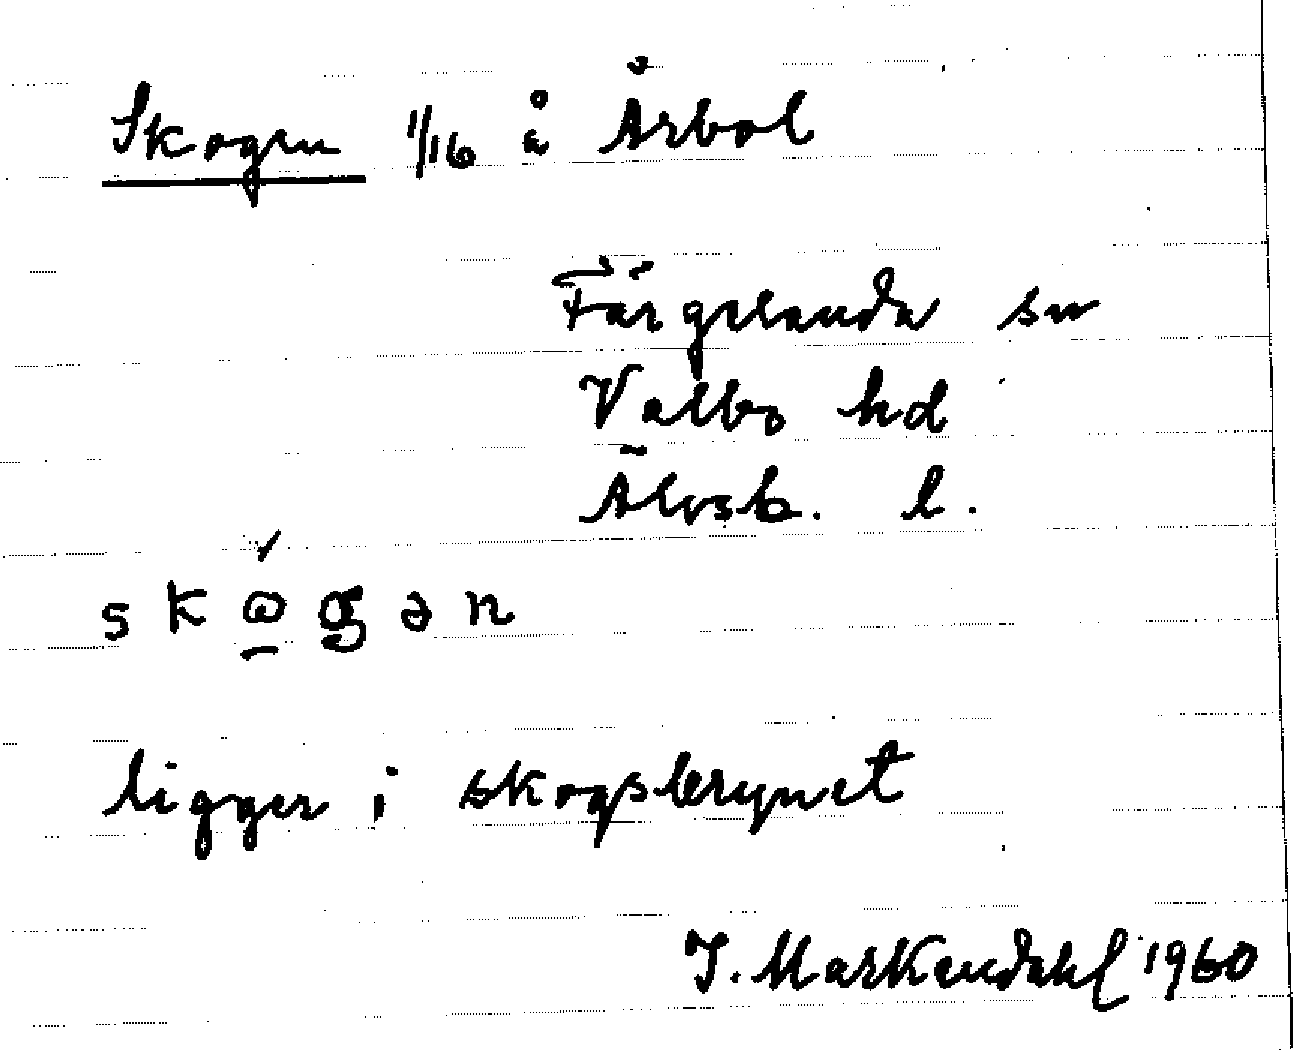 Skogen 1/16 å Årbol
Färgelanda sn
Valbo hd
Älvsb. l.
skω̲̌gən
ligger i skogsbrynet
J. Markendahl 1960